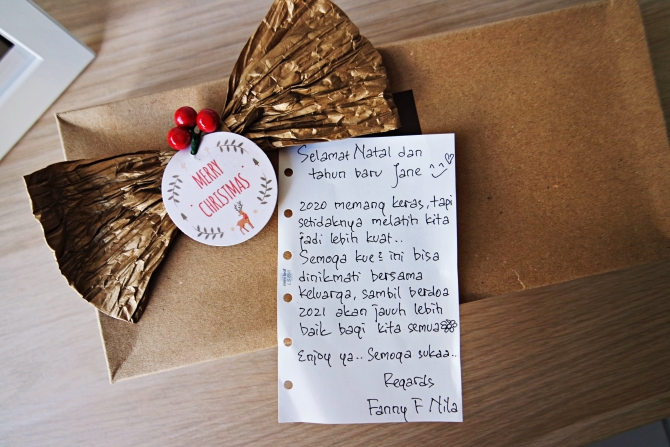 MERRY
CHRISTMAS
Selamat Natal dan
tahun baru Jane
2020 memang keras, tapi
setidaknya melatih kita
jadi lebih kuat..
Semoga kue² ini bisa
dinikmati bersama
keluarga, sambil berdoa
2021 akan jauuh lebih
baik bagi kita semua
Enjoy ya.. Semoga sukaa..
Regards
Fanny F Nila